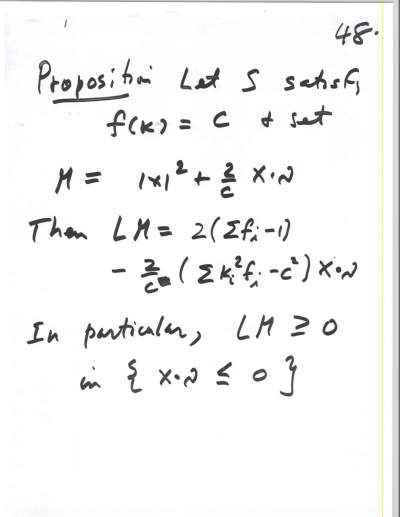 48.
Proposition Let S satisfy
f(κ) = c & set
M = |x|² + 2/c x·ν
Then LM = 2(Σfᵢ-1)
- 2/c (Σκᵢ²fᵢ-c²) x·ν
In particular, LM ≥ 0
in { x·ν ≤ 0 }